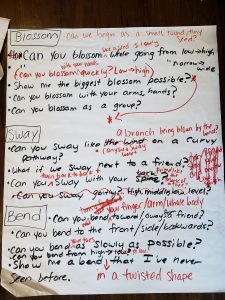 Blossom - Can we begin as a small round tiny seed?
Can you blossom while going from low→high, stems slowly
with your hands "narrow→wide
(Can you blossom quickly? Low→high)
• Show me the biggest blossom possible?
• Can you blossom with your arms, hands?
• Can you blossom as a group?
Sway a branch being blown by the wind?
• Can you sway like the wind on a curvy pathway?
• What if we sway next to a friend?
• Can you sway with your spine?
• Can you sway going? high middle low level?
your finger/arm/whole body
Bend
• Can you bend toward/away a friend?
• Can you bend to the front/side/backwards?
• Can you bend as slowly as possible?
• Can you bend from high→low
• Show me a bend that I've never
seen before. in a twisted shape